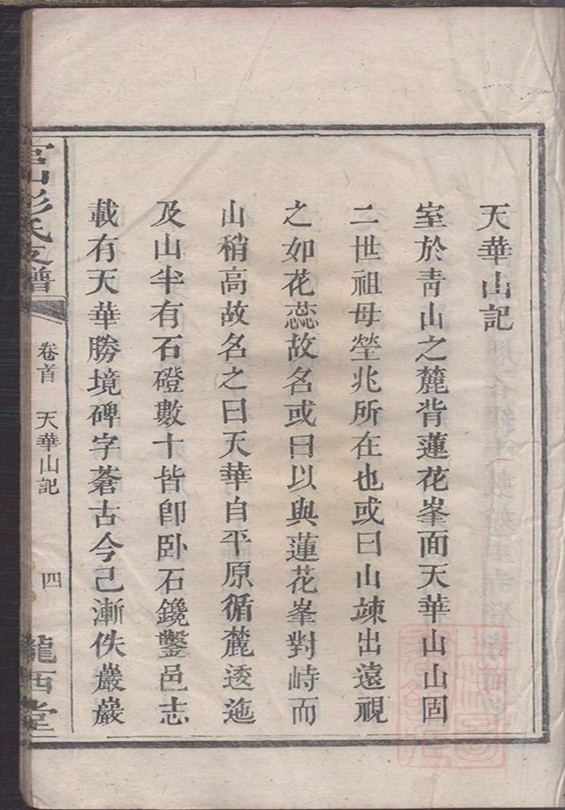 天華山記
室於靑山之麓背蓮花峯面天華山山固
二世祖母塋兆所在也或曰山竦出遠視
之如花蕊故名或曰以與蓮花峯對峙而
山稍高故名之曰天華自平原循麓逶迤
及山半有石磴數十皆卽卧石鑱鑿邑志
載有天華勝境碑字蒼古今已漸佚巖巖
彭氏支譜
卷首
天華山記
四
隴西堂